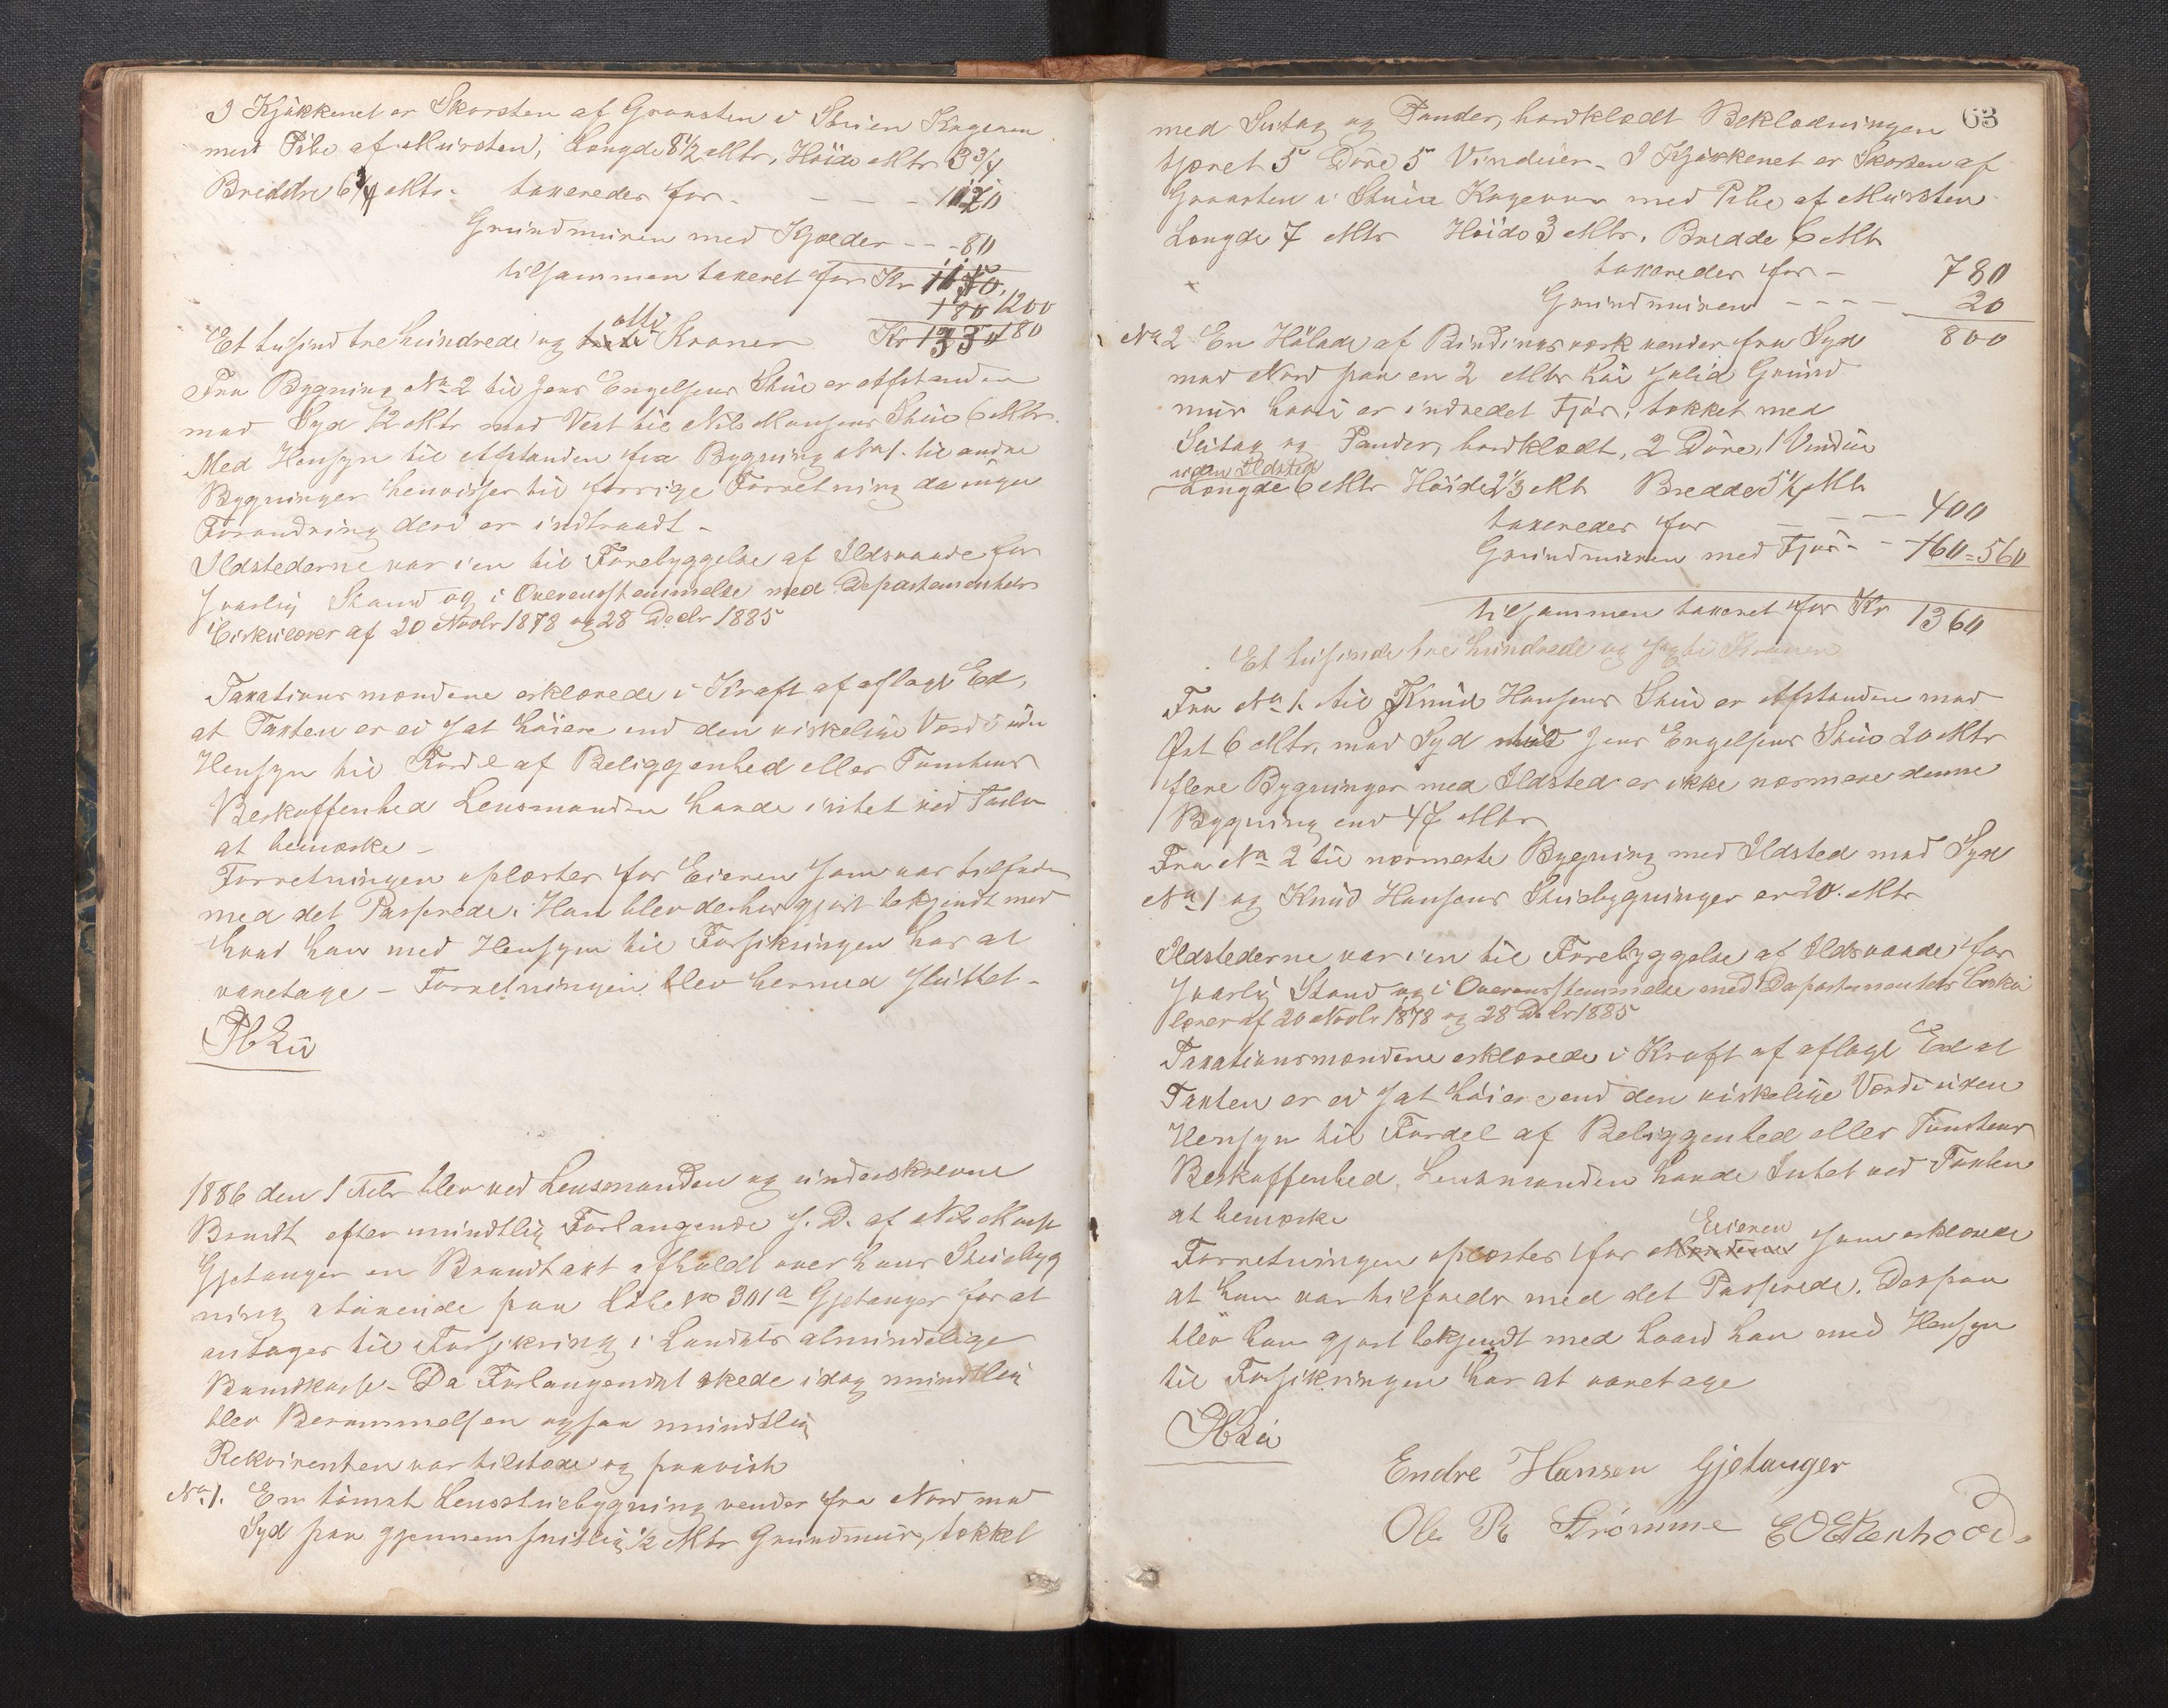 I Kjøkkenet er Skorsten af Graasten i Stuen Kagovn
med Pibe af Mursten, Længde 8 1/2 Mtr, Høide Mtr 3 3/4
Bredde 6 3/4 Mtr. taxeredes for - - - - 1120
Grundmuren med Kjælder - - - 80
tilsammen taxeret for Kr
180 1200
180
Et tusind tre hundrede og otti Kroner Kr
Fra Bygning No 2 til Jens Engelsens Stue er Afstanden
mod Syd 12 Mtr mod Vest til Nils Monsens Stue 6 Mtr.
Med Hensyn til Afstanden fra Bygning No 1. til andre
Bygninger henvises til forrige Forretning da ingen
Forandring deri er indtraadt -
Ildstederne var i en til Forebyggelse af Ildsvaade for
svarlig Stand og i Overensstemmelse med Departementets
Cirkulærer af 20 Novbr 1878 og 28 Decbr 1885
Taxationsmændene erklærede i Kraft af aflagt Ed,
at Taxten er ei sat høiere end den virkelige Værdi uden
Hensyn til Fordel af Beliggenhed eller Tomtens
Beskaffenhed Lensmanden havde intet ved Taxten
at bemærke -
Forretningen oplæstes for Eieren som var tilfreds
med det Passerede. Han blev derhos gjort bekjendt med
hvad han med Hensyn til Forsikringen har at
varetage - Forretningen blev hermed sluttet -
1886 den 1 Febr blev ved Lensmanden og underskrevne
Mændt efter mundtlig Forlangende s. D. af Nils Mons
Gjetanger en Brandtaxt afholdt over hans Stuebyg
ning staaende paa Løbe No 301a Gjetanger for at
antages til Forsikring i Landets almindelige
Brandkasse - Da Forlangendet skede idag mundtlig
blev Berammelsen ogsaa mundtlig
Rekvirenten var tilstæde og paaviste
No 1. En tømret Lensstuebygning vender fra Nord mod
Syd paa gjennemsnitlig 1/2 Mtr Grundmur, tækket
63
med Sutag og Pander, bordklædt Beklædningen
tjæret 5 Døre 5 Vinduer - I Kjøkkenet er Skorsten af
Graasten i Stuen Kagovn med Pibe af Mursten
Længde 7 Mtr Høide 3 Mtr, Bredde 6 Mtr
taxeredes for - 780
Grundmuren - - - - 20
800
No 2 En Hølade af Bindingsværk vender fra Syd
mod Nord paa en 2 Mtr høi solid Grund
mur hvori er indredet Fjøs, tækket med
Sutag og Pander, bordklædt, 2 Døre, 1 Vindue
uden Ildsted
Længde 6 Mtr Høide 2 1/3 Mtr Bredde 5 1/2 Mtr
taxeredes for - - - 400
Grundmuren med Fjøs - - 160 = 560
tilsammen taxeret for Kr 1360
Et tusinde tre hundrede og sexti Kroner
Fra No 1. til Knud Hansens Stue er Afstanden mod
Øst 6 Mtr, mod Syd Jens Engelsens Stue 20 Mtr
flere Bygninger med Ildsted er ikke nærmere denne
Bygning end 47 Mtr
Fra No 2 til nærmeste Bygning med Ildsted mod Syd
No 1 og Knud Hansens Stuebygninger er 20 Mtr
Ildstederne var i en til Forebyggelse af Ildsvaade for
svarlig Stand og i Overensstemmelse med Departementets Cirku
lærer af 20 Novbr 1878 og 28 Decbr 1885
Taxationsmændene erklærede i Kraft af aflagt Ed at
Taxten er ei sat høiere end den virkelige Værdi uden
Hensyn til Fordel af Beliggenhed eller Tomtens
Beskaffenhed, Lensmanden havde Intet ved Taxten
at bemærke
Eieren
Forretningen oplæstes for som erklærede
at han var tilfreds med det Passerede. Derpaa
blev han gjort bekjendt med hvad han med Hensyn
til Forsikringen har at varetage
Endre Hansen Gjetanger
Ole P. Strømme